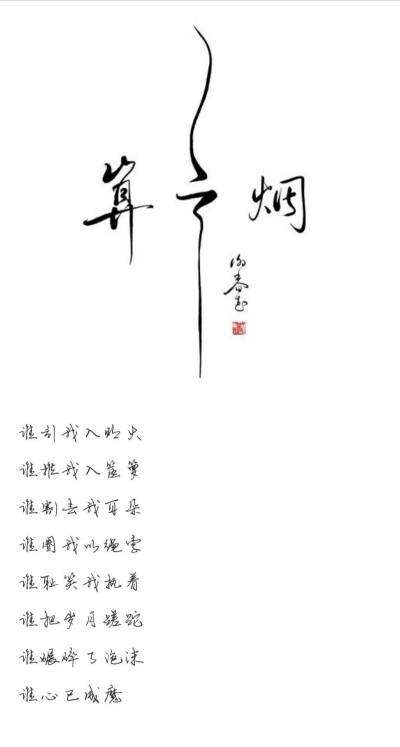 算 烟
谁引我入明火
谁推我入筐箩
谁割去我耳朵
谁圈我以绳索
谁耻笑我执着
谁把岁月蹉跎
谁碾碎了泡沫
谁心已成魔